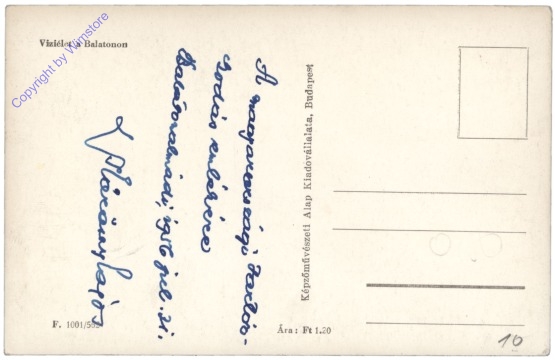 Vizíélet a Balatonon
Copyright by Wimstore
A magyarországi tartóz-
kodás emlékére
Balatonalmádi, 1956 júl. 21.
Képzőművészeti Alap Kiadóvállalata, Budapest
F. 1001/552
Ára: Ft 1.20
10